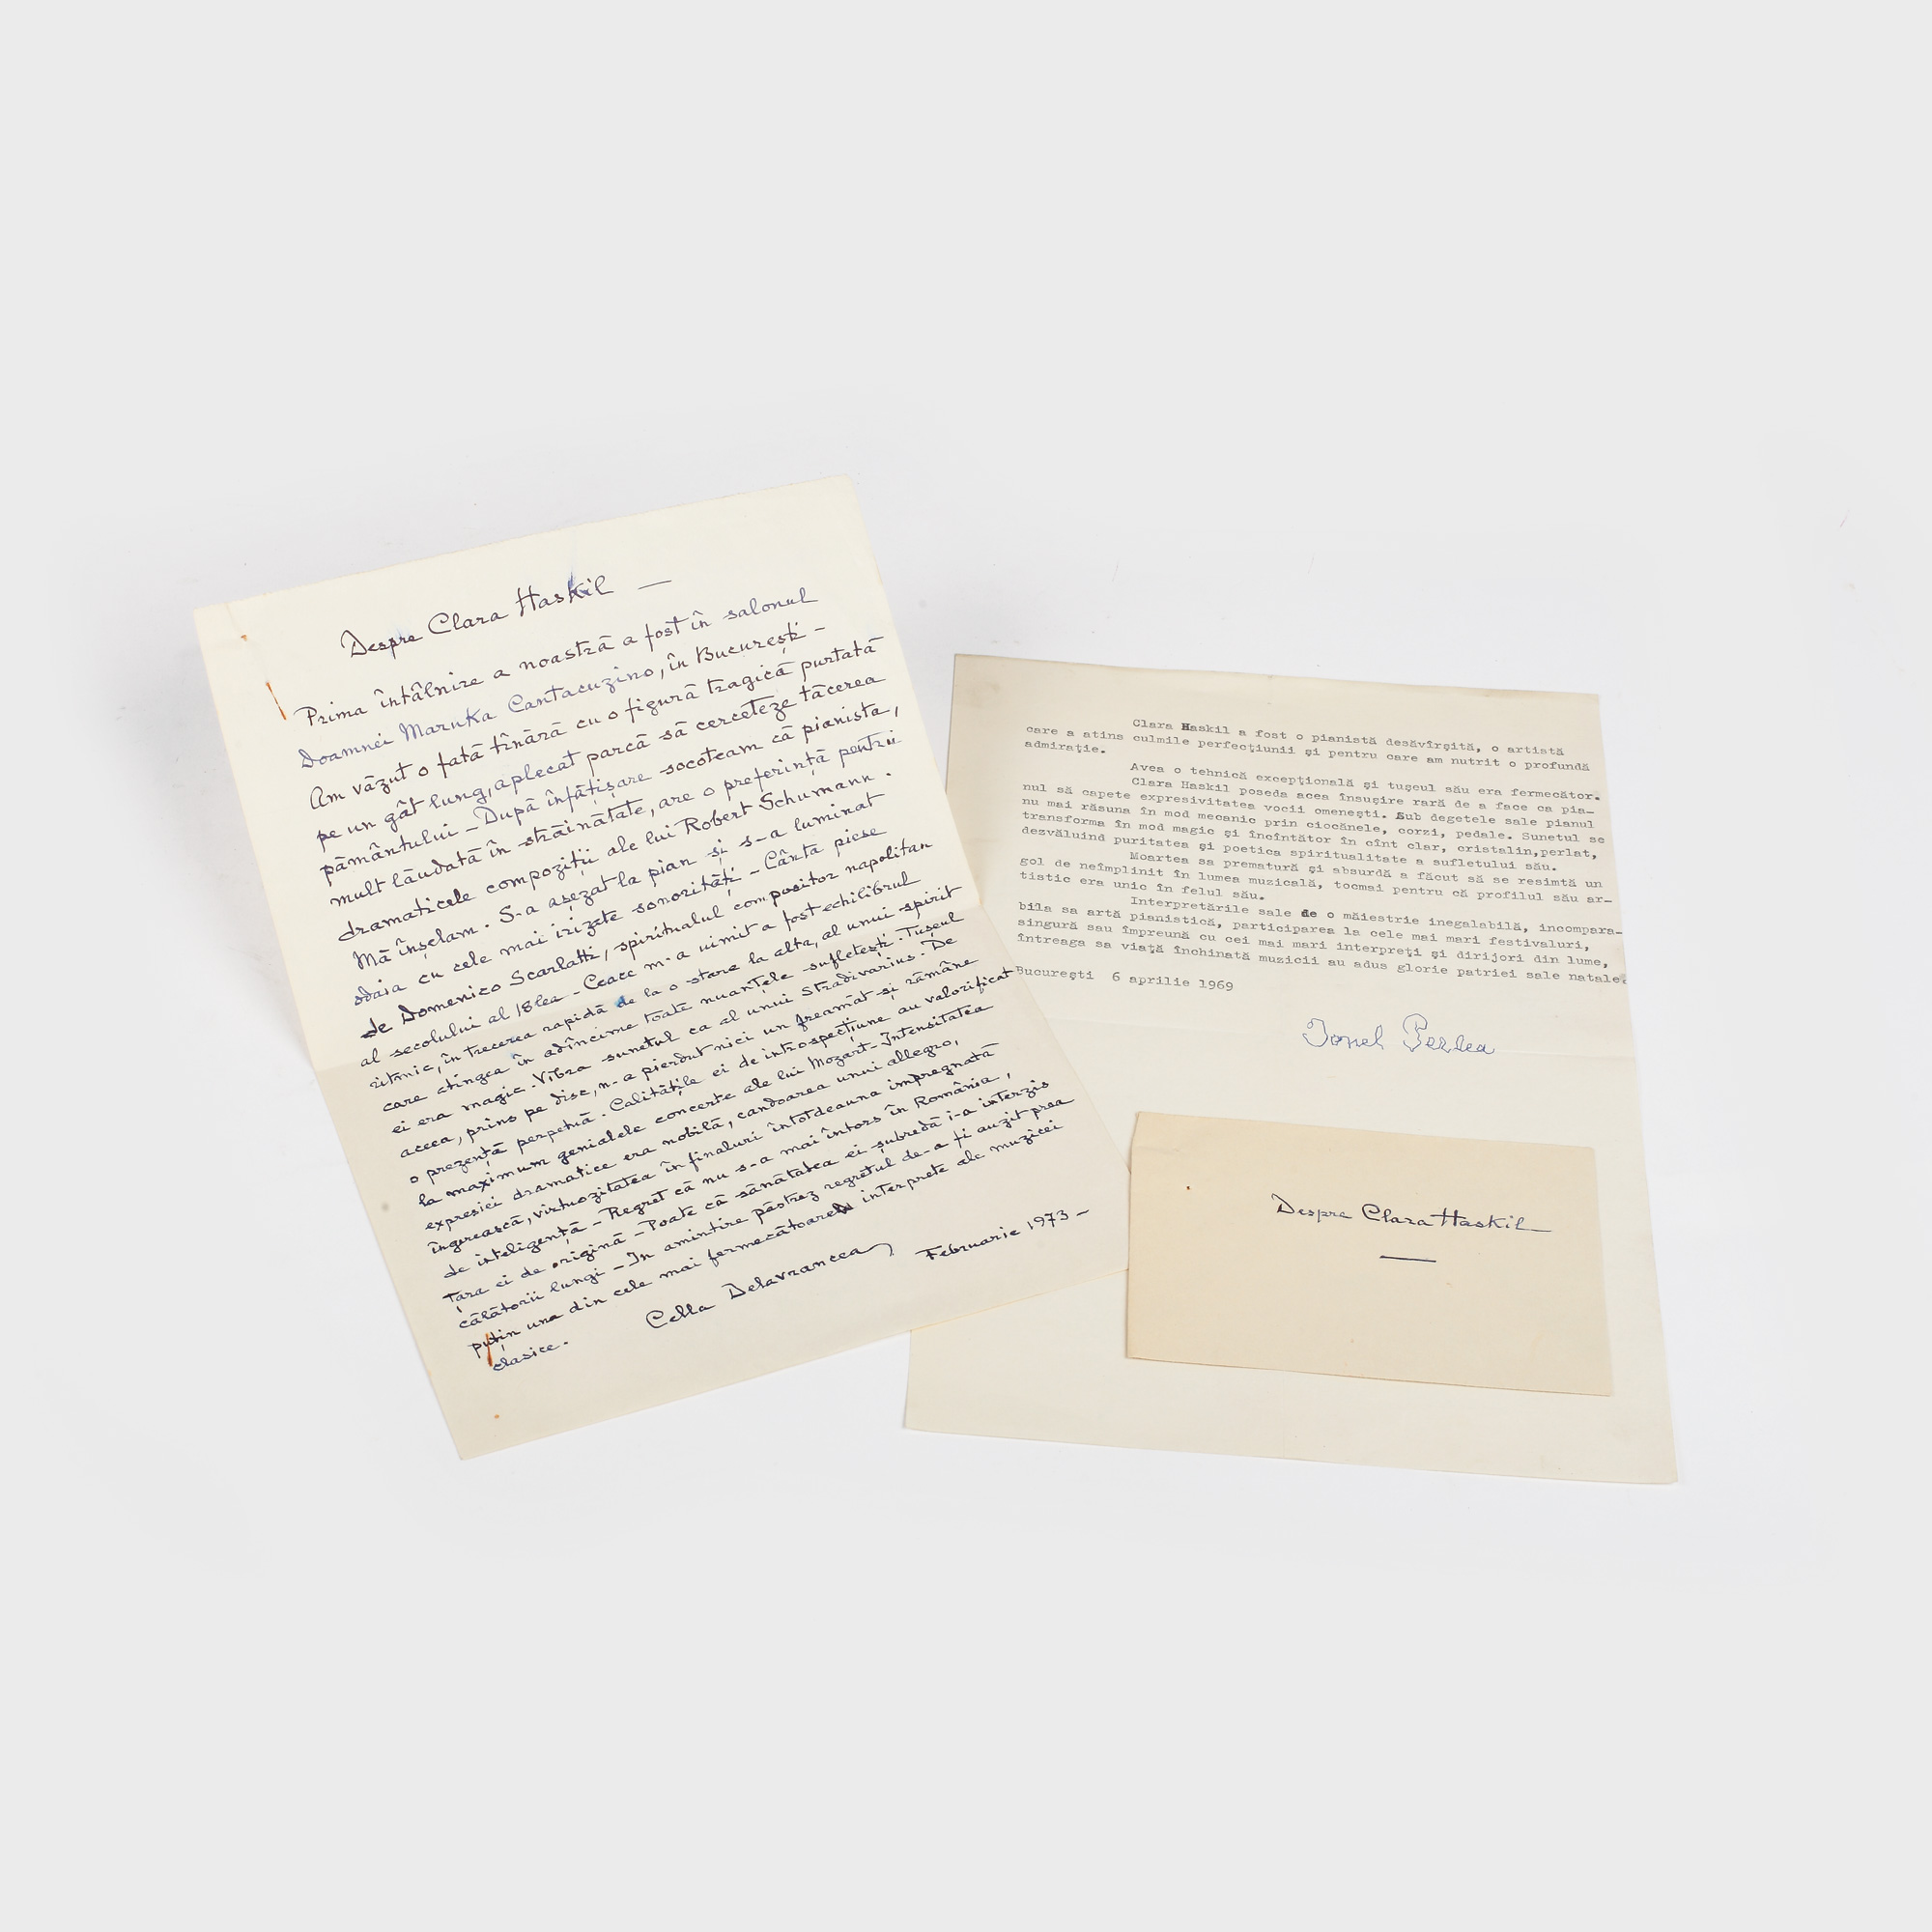 Despre Clara Haskil —
Prima întâlnire a noastră a fost în salonul
Doamnei Maruka Cantacuzino, în Bucureşti –
Am văzut o fată tînără cu o figură tragică purtată
pe un gât lung, aplecat parcă să cerceteze tăcerea
pământului – După înfăţişare socoteam că pianista,
mult lăudată în străinătate, are o preferinţă pentru
dramaticele compoziţii ale lui Robert Schumann.
Mă înşelam. S-a aşezat la pian şi s-a luminat
odaia cu cele mai irizate sonorităţi – Cânta piese
de Domenico Scarlatti, spiritualul compozitor napolitan
al secolului al 18lea – Ceace m-a uimit a fost echilibrul
ritmic, în trecerea rapidă de la o stare la alta, al unui spirit
care atingea în adîncime toate nuanţele sufleteşti. Tuşeul
ei era magic. Vibra sunetul ca al unui Stradivarius. De
aceea, prins pe disc, n-a pierdut nici un freamăt şi rămâne
o prezenţă perpetuă. Calităţile ei de introspecţiune au valorificat
la maximum genialele concerte ale lui Mozart – Intensitatea
expresiei dramatice era nobilă, candoarea unui allegro,
îngerească, virtuozitatea în finaluri întotdeauna impregnată
de inteligenţă – Regret că nu s-a mai întors în România,
Ţara ei de origină – Poate că sănătatea ei şubredă i-a interzis
călătorii lungi – In amintire păstrez regretul de-a fi auzit prea
puţin una din cele mai fermecătoare interprete ale muzicei
clasice.
Cella Delavrancea
Februarie 1973 –
Clara Haskil a fost o pianistă desăvîrşită, o artistă
care a atins culmile perfecţiunii şi pentru care am nutrit o profundă
admiraţie.
Avea o tehnică excepţională şi tuşeul său era fermecător.
Clara Haskil poseda acea însuşire rară de a face ca pia-
nul să capete expresivitatea vocii omeneşti. Sub degetele sale pianul
nu mai răsuna în mod mecanic prin ciocănele, corzi, pedale. Sunetul se
transforma în mod magic şi încîntător în cînt clar, cristalin,perlat,
dezvăluind puritatea şi poetica spiritualitate a sufletului său.
Moartea sa prematură şi absurdă a făcut să se resimtă un
gol de neîmplinit în lumea muzicală, tocmai pentru că profilul său ar-
tistic era unic în felul său.
Interpretările sale de o măiestrie inegalabilă, incompara-
bila sa artă pianistică, participarea la cele mai mari festivaluri,
singură sau împreună cu cei mai mari interpreţi şi dirijori din lume,
întreaga sa viaţă închinată muzicii au adus glorie patriei sale natale.
Bucureşti 6 aprilie 1969
Ionel Perlea
Despre Clara Haskil